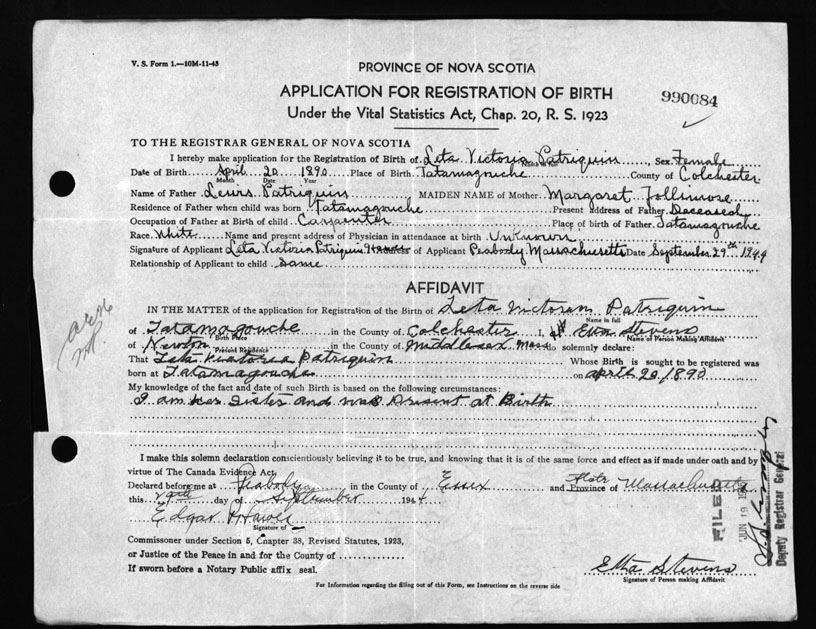 V. S. Form 1.—10M-11-43
PROVINCE OF NOVA SCOTIA
APPLICATION FOR REGISTRATION OF BIRTH
990084
Under the Vital Statistics Act, Chap. 20, R. S. 1923
TO THE REGISTRAR GENERAL OF NOVA SCOTIA
I hereby make application for the Registration of Birth of Leta Victoria Patriquin, Sex Female
Name in full
Date of Birth April 20 1890 Place of Birth Tatamagouche County of Colchester
Month Date Year
Name of Father Lewis Patriquin MAIDEN NAME of Mother Margaret
Residence of Father when child was born Tatamagouche Present address of Father Deceased
Occupation of Father at Birth of child Carpenter Place of birth of Father Tatamagouche
Race White Name and present address of Physician in attendance at birth Unknown
Signature of Applicant Leta Victoria Patriquin Hawes Address of Applicant Peabody Massachusetts Date September 29th 1944
Relationship of Applicant to child Same
AFFIDAVIT
IN THE MATTER of the application for Registration of the Birth of Leta Patriquin
Name in full
of Tatamagouche in the County of Colchester I, Stevens
Birth Place
Name of Person Making Affidavit
of Newton in the County of Middlesex Mass do solemnly declare:
Present Residence
That Leta Victoria Patriquin Whose Birth is sought to be registered was
born at Tatamagouche on April 20 1890
My knowledge of the fact and date of such Birth is based on the following circumstances:
I am her sister and was Present at Birth
I make this solemn declaration conscientiously believing it to be true, and knowing that it is of the same force and effect as if made under oath and by
virtue of The Canada Evidence Act,
Declared before me at Peabody in the County of Essex and State Province of Massachusetts
this 29th day of September 1944
Edgar Hawes
Signature of
Commissioner under Section 5, Chapter 38, Revised Statutes, 1923,
or Justice of the Peace in and for the County of
If sworn before a Notary Public affix seal.
Etta Stevens
Signature of Person making Affidavit
For Information regarding the filling out of this Form, see Instructions on the reverse side
FILED
JUN 19
Deputy Registrar General